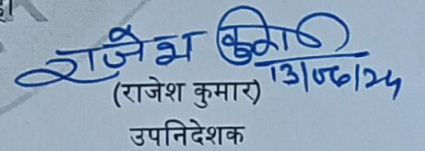 राजेश कुमार
13/06/24
(राजेश कुमार)
उपनिदेशक